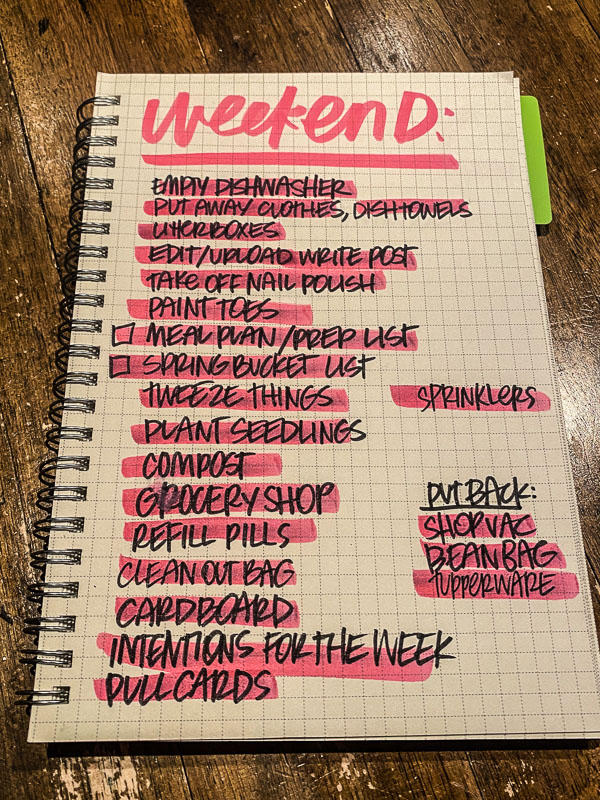 WeekenD:
EMPTY DISHWASHER
PUT AWAY CLOTHES, DISHTOWELS
LITTERBOXES
EDIT/UPLOAD WRITE POST
TAKE OFF NAIL POLISH
PAINT TOES
MEAL PLAN/PREP LIST
SPRING BUCKET LIST
TWEEZE THINGS
PLANT SEEDLINGS
COMPOST
GROCERY SHOP
REFILL PILLS
CLEAN OUT BAG
CARDBOARD
INTENTIONS FOR THE WEEK
PULL CARDS
SPRINKLERS
PUT BACK:
SHOPVAC
BEANBAG
TUPPERWARE